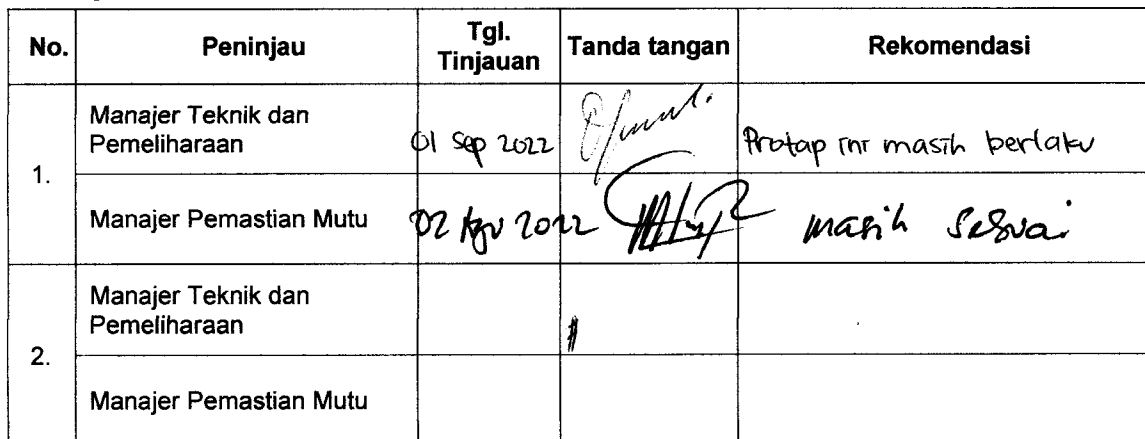 No. Peninjau Tgl. Tinjauan Tanda tangan Rekomendasi
1.
Manajer Teknik dan
Pemeliharaan
01 Sep 2022
Protap ini masih berlaku
Manajer Pemastian Mutu
02 Agu 2022
masih sesuai
2.
Manajer Teknik dan
Pemeliharaan
Manajer Pemastian Mutu